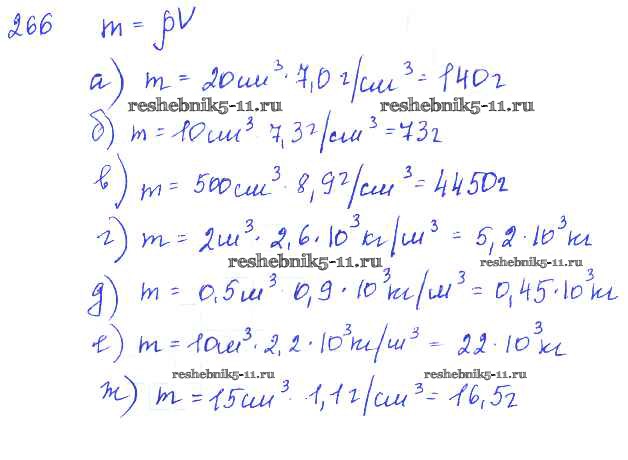 266 m = ρV
а) m = 20см³ · 7,0 г/см³ = 140г
reshebnik5-11.ru reshebnik5-11.ru
б) m = 10см³ 7,3г/см³ = 73г
в) m = 500см³ · 8,9г/см³ = 4450г
г) m = 2м³ · 2,6 · 10³ кг/м³ = 5,2 · 10³ кг
reshebnik5-11.ru reshebnik5-11.ru
д) m = 0,5м³ 0,9 · 10³ кг/м³ = 0,45 · 10³ кг
е) m = 10м³ · 2,2 · 10³ кг/м³ = 22 · 10³ кг
reshebnik5-11.ru reshebnik5-11.ru
ж) m = 15см³ · 1,1г/см³ = 16,5г